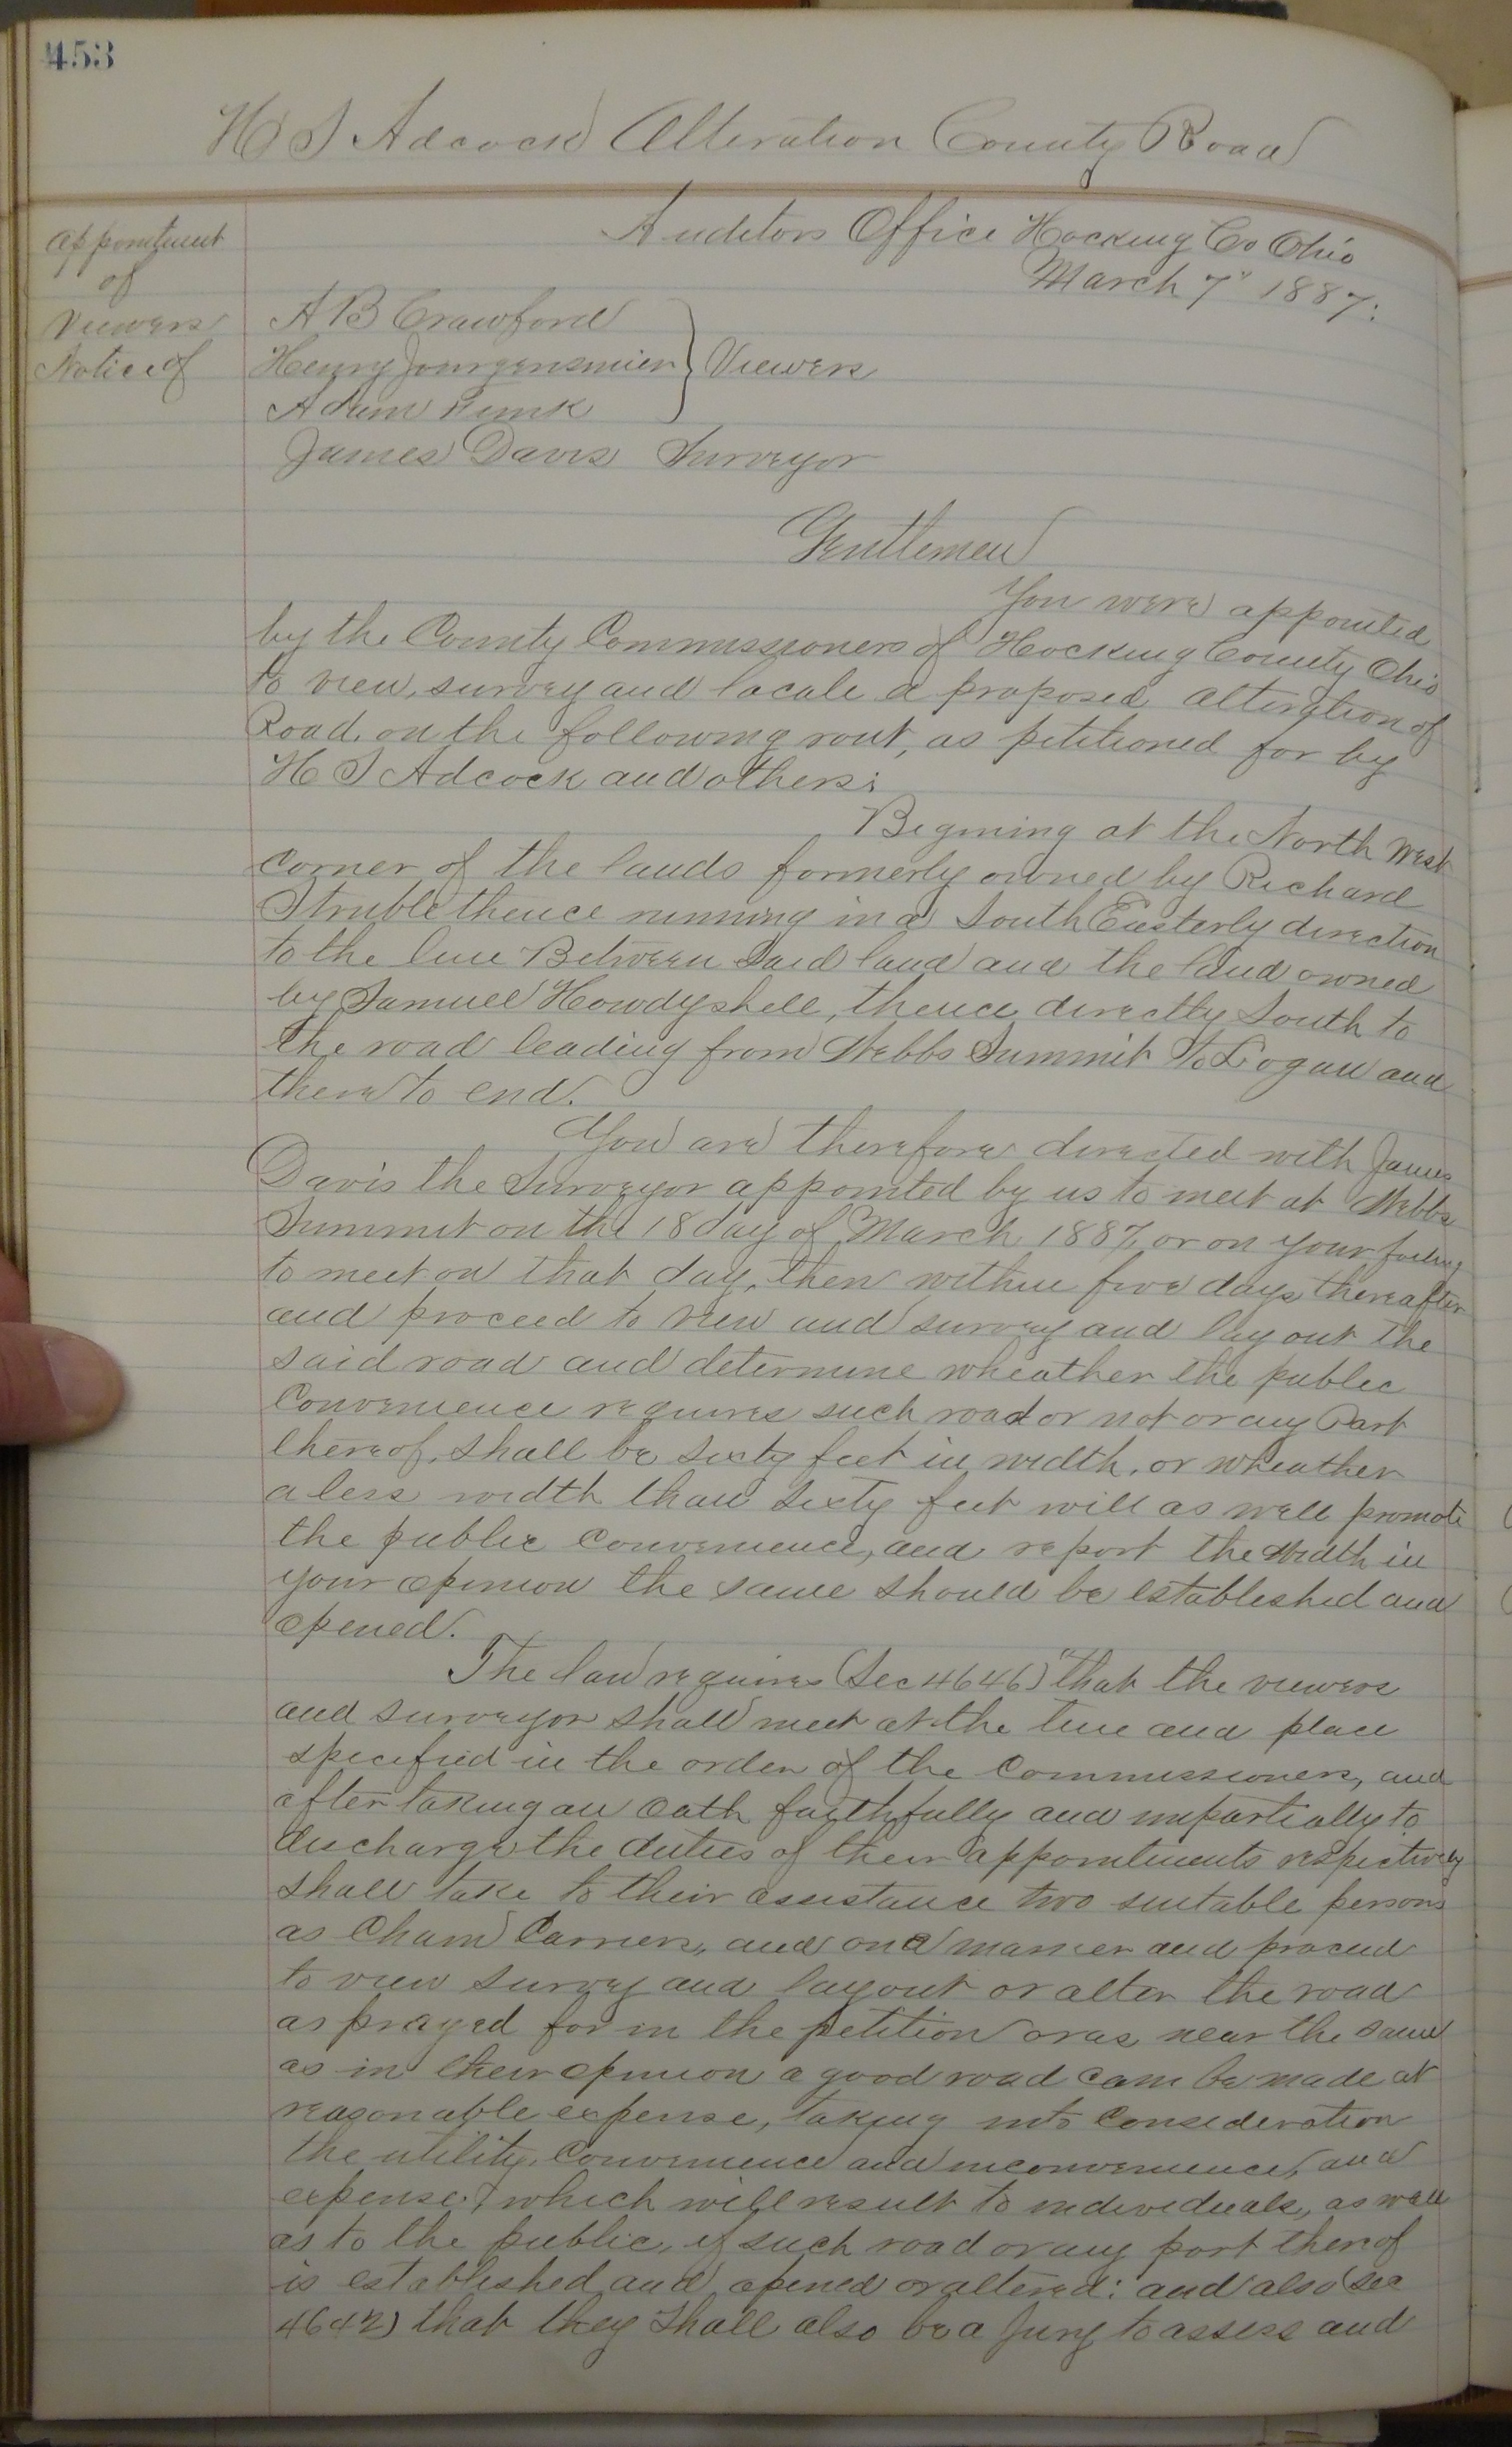 453
H S Adcock Alteration County Road
Appointment
of
Viewers
Notice of
Auditors Office Hocking Co Ohio
March 7" 1887.
A B Crawford
Henry Jourgensmier } Viewers
Adam Funk
James Davis Surveyor
Gentlemen
You were appointed
by the County Commissioners of Hocking County Ohio
to view, survey and locate a proposed alteration of
Road, on the following rout, as petitioned for by
H S Adcock and others:
Begining at the North West
Corner of the lands formerly owned by Richard
Struble thence running in a South Easterly direction
to the line Between Said land and the land owned
by Samuel Howdyshell, thence directly South to
the road leading from Webbs Summit to Logan and
there to end.
You are therefore directed with James
Davis the Surveyor appointed by us to meet at Webbs
Summit on the 18 day of March 1887, or on your failing
to meet on that day, then within five days thereafter
and proceed to view and survey and lay out the
said road and determine wheather the public
Convenience requires such road or not or any Part
thereof, shall be sixty feet in width, or wheather
a less width than sixty feet will as well promote
the public convenience, and report the width in
your opinion the same should be established and
opened.
The law requires (Sec 4646) "that the viewers
and surveyor shall meet at the time and place
specified in the order of the Commissioners, and
after taking an oath faithfully and impartially to
discharge the duties of their appointments respectively
shall take to their assistance two suitable persons
as Chain Carriers, and one marker and proceed
to view survey and layout or alter the road
as prayed for in the petition or as near the same
as in their opinion a good road can be made at
reasonable expense, taking into Consideration
the utility, Convenience and inconvenience, and
expense, which will result to individuals, as well
as to the public, if such road or any part thereof
is established and opened or altered: and also (Sec
4642) that they shall also be a Jury to assess and